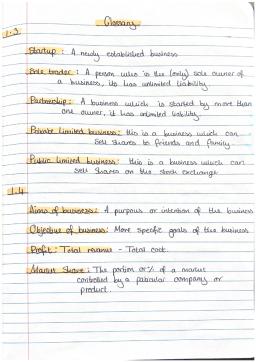 Glossary
1.3
Startup : A newly established business
Sole trader : A person who is the (only) sole owner of
a business, its has unlimited liability
Partnership : A business which is started by more than
one owner, it has unlimited liability
Private Limited business : this is a business which can
sell shares to friends and family
Public limited business : this is a business which can
sell shares on the stock exchange
1.4
Aims of business : A purpous or intention of the business
Objective of business : More specific goals of the business
Profit : Total revenue - Total cost.
Market Share : The portion or % of a market
controlled by a paticular company or
product.